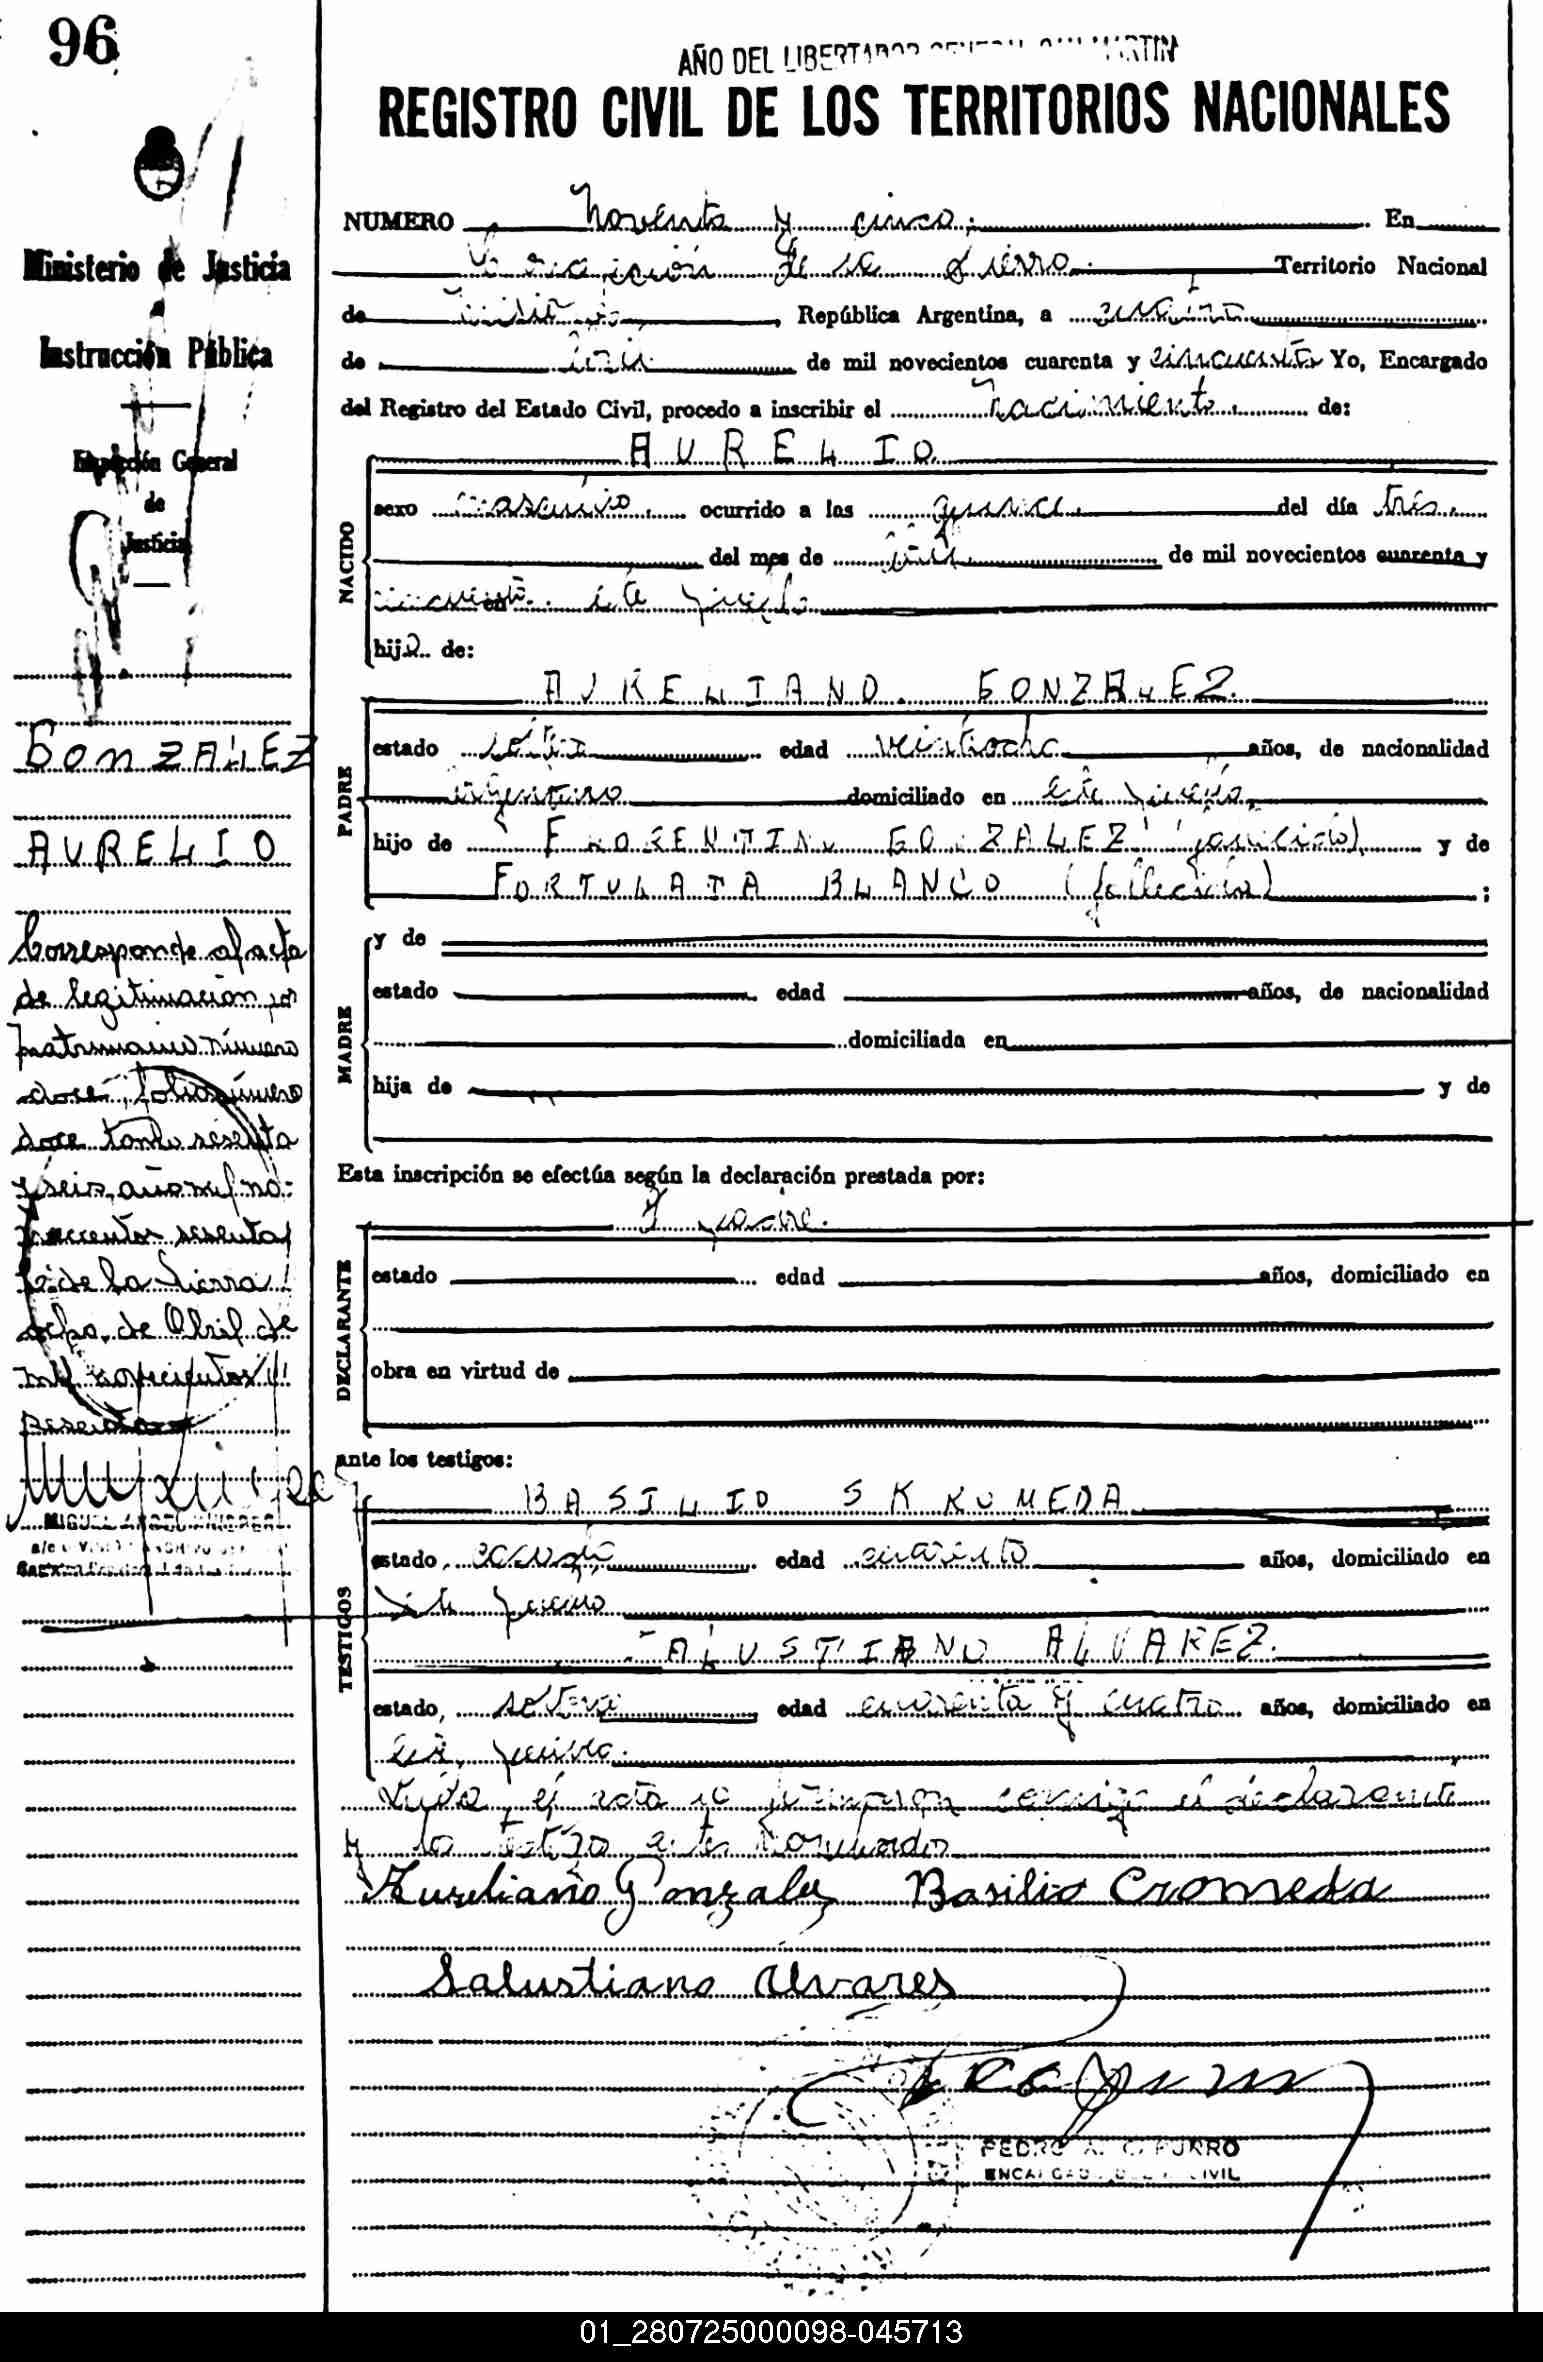 96
AÑO DEL LIBERTADOR GENERAL SAN MARTIN
REGISTRO CIVIL DE LOS TERRITORIOS NACIONALES
Ministerio de Justicia
Instrucción Pública
Inspección General
de
Justicia
GONZALEZ
AURELIO
Corresponde al acta
de legitimación por
matrimonio número
doce, folio número
doce tomo sesenta
y seis, año mil no-
vecientos sesenta
de la Sierra
ocho de Abril de
mil novecientos
sesenta
NUMERO noventa y cinco; En
de la Sierra Territorio Nacional
de República Argentina, a cuatro
de de mil novecientos cuarenta y cincuenta Yo, Encargado
del Registro del Estado Civil, procedo a inscribir el nacimiento de:
NACIDO
AURELIO
sexo masculino ocurrido a las quince del día tres
del mes de de mil novecientos cuarenta y
cincuenta en este pueblo
hijo de:
PADRE
AURELIANO GONZALEZ
estado soltero edad veintiocho años, de nacionalidad
argentino domiciliado en este pueblo,
hijo de FLORENTINO GONZALEZ (fallecido) y de
FORTULATA BLANCO (fallecida) ;
MADRE
y de
estado edad años, de nacionalidad
domiciliada en
hija de y de
Esta inscripción se efectúa según la declaración prestada por:
DECLARANTE
El padre.
estado edad años, domiciliado en
obra en virtud de
ante los testigos:
TESTIGOS
BASILIO SKROMEDA
estado, casado edad cuarenta años, domiciliado en
este pueblo
SALUSTIANO ALVAREZ.
estado, soltero edad cuarenta y cuatro años, domiciliado en
este pueblo.
Leída el acta la firmaron conmigo el declarante
y los testigos antes nombrados
Aureliano Gonzalez Basilio Cromeda
Salustiano Alvares
PEDRO
ENCARGADO DEL R. CIVIL
01_280725000098-045713